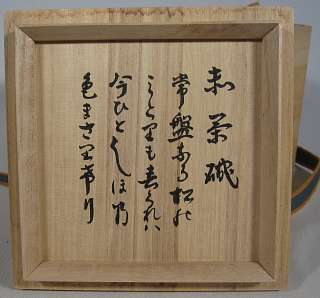 赤茶碗
常盤なる松の
みとりも春くれハ
今ひとしほ乃
色まさり希り